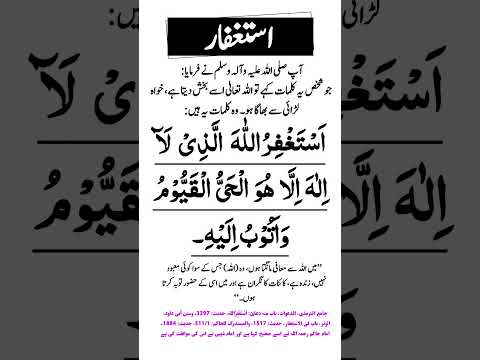 استغفار
آپ صلی اللہ علیہ وآلہ وسلم نے فرمایا:
جو شخص یہ کلمات کہے تو اللہ تعالیٰ اسے بخش دیتا ہے، خواہ
لڑائی سے بھاگا ہو۔ وہ کلمات یہ ہیں:
اَسْتَغْفِرُ اللّٰهَ الَّذِیْ لَآ
اِلٰهَ اِلَّا هُوَ الْحَیُّ الْقَیُّوْمُ
وَاَتُوْبُ اِلَیْهِ۔
”میں اللہ سے معافی مانگتا ہوں، وہ (اللہ) جس کے سوا کوئی معبود
نہیں، زندہ ہے، کائنات کا نگران ہے اور میں اسی کے حضور توبہ کرتا
ہوں۔“
جامع الترمذی، الدعوات، باب منہ دعائ: استغفراللہ، حدیث: 3397، وسنن أبی داود،
الوتر، باب فی الاستغفار، حدیث: 1517، والمستدرک للحاکم: 511/1، حدیث: 1884۔
امام حاکم رحمہ اللہ نے اسے صحیح کہا ہے اور امام ذہبی نے اس کی موافقت کی ہے